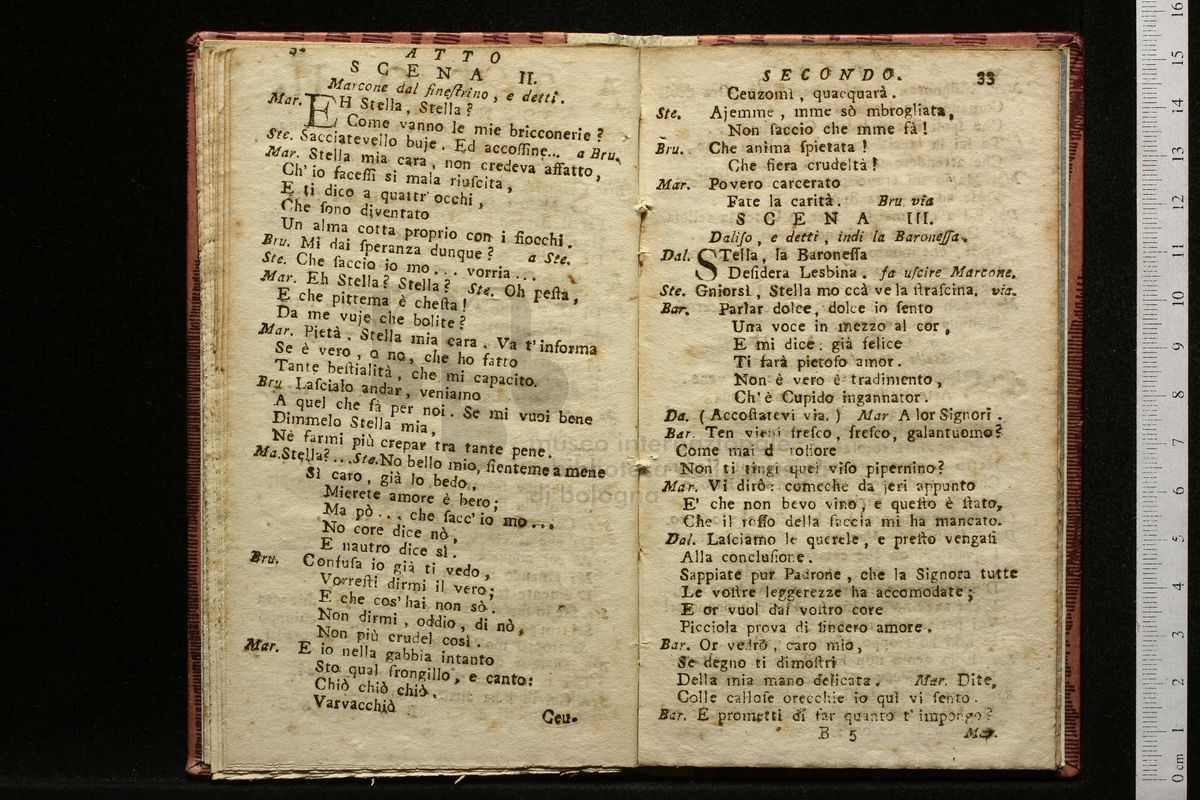 ATTO
SCENA II.
Marcone dal fineſtrino, e detti.
Mar. EH Stella, Stella?
Come vanno le mie bricconerie?
Ste. Sacciatevello buje. Ed accoſſine... a Bru.
Mar. Stella mia cara, non credeva affatto,
Ch' io faceſſi sì mala riuſcita,
E ti dico a quattr' occhi,
Che ſono diventato
Un alma cotta proprio con i fiocchi.
Bru. Mi dai ſperanza dunque? a Ste.
Ste. Che faccio io mo... vorria...
Mar. Eh Stella? Stella? Ste. Oh peſta,
E che pittema è cheſta!
Da me vuje che bolite?
Mar. Pietà, Stella mia cara. Va t' informa
Se è vero, o no, che ho fatto
Tante beſtialità, che mi capacito.
Bru Laſcialo andar, veniamo
A quel che fà per noi. Se mi vuoi bene
Dimmelo Stella mia,
Nè farmi più crepar tra tante pene.
Ma. Stella?... Ste. No bello mio, ſienteme a mene
Sì caro, già lo bedo,
Mierete amore è bero;
Ma pò... che facc' io mo...
No core dice nò,
E nautro dice sì.
Bru. Confuſa io già ti vedo,
Vorreſti dirmi il vero;
E che cos' hai non sò.
Non dirmi, oddio, di nò,
Non più crudel così.
Mar. E io nella gabbia intanto
Sto qual frongillo, e canto:
Chiò chiò chiò,
Varvacchiò
Ceu-
SECONDO. 33
Ceuzomì, quacquarà.
Ste. Ajemme, mme sò mbrogliata,
Non ſaccio che mme fà!
Bru. Che anima ſpietata!
Che fiera crudeltà!
Mar. Povero carcerato
Fate la carità. Bru. via
SCENA III.
Daliſo, e detti, indi la Baroneſſa.
Dal. STella, la Baroneſſa
Deſidera Lesbina. fa uſcire Marcone.
Ste. Gniorsì, Stella mo ccà ve la ſtraſcina. via.
Bar. Parlar dolce, dolce io ſento
Una voce in mezzo al cor,
E mi dice: già felice
Ti farà pietoſo amor.
Non è vero è tradimento,
Ch' è Cupido ingannator.
Da. (Accoſtatevi via.) Mar A lor Signori.
Bar. Ten vieni freſco, freſco, galantuomo?
Come mai d roſſore
Non ti tingi quel viſo pipernino?
Mar. Vi dirò: comeche da jeri appunto
E' che non bevo vino, e queſto è ſtato,
Che il roſſo della faccia mi ha mancato.
Dal. Laſciamo le querele, e preſto vengaſi
Alla concluſione.
Sappiate pur Padrone, che la Signora tutte
Le voſtre leggerezze ha accomodate;
E or vuol dal voſtro core
Picciola prova di ſincero amore.
Bar. Or vedrò, caro mio,
Se degno ti dimoſtri
Della mia mano delicata. Mar. Dite,
Colle calloſe orecchie io quì vi ſento.
Bar. E prometti di far quanto t' impongo?
B 5 Mar.
museo internazionale
di bologna